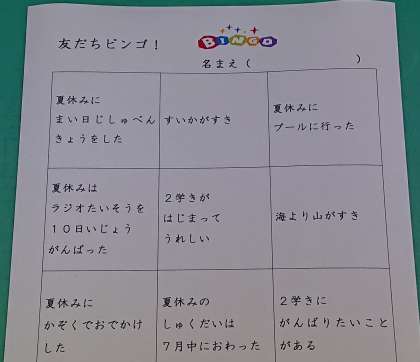 友だちビンゴ！
BINGO
名まえ（　　　　　　　　）
夏休みに
まい日じしゅべん
きょうをした
すいかがすき
夏休みに
プールに行った
夏休みは
ラジオたいそうを
１０日いじょう
がんばった
２学きが
はじまって
うれしい
海より山がすき
夏休みに
かぞくでおでかけ
した
夏休みの
しゅくだいは
７月中におわった
２学きに
がんばりたいこと
がある